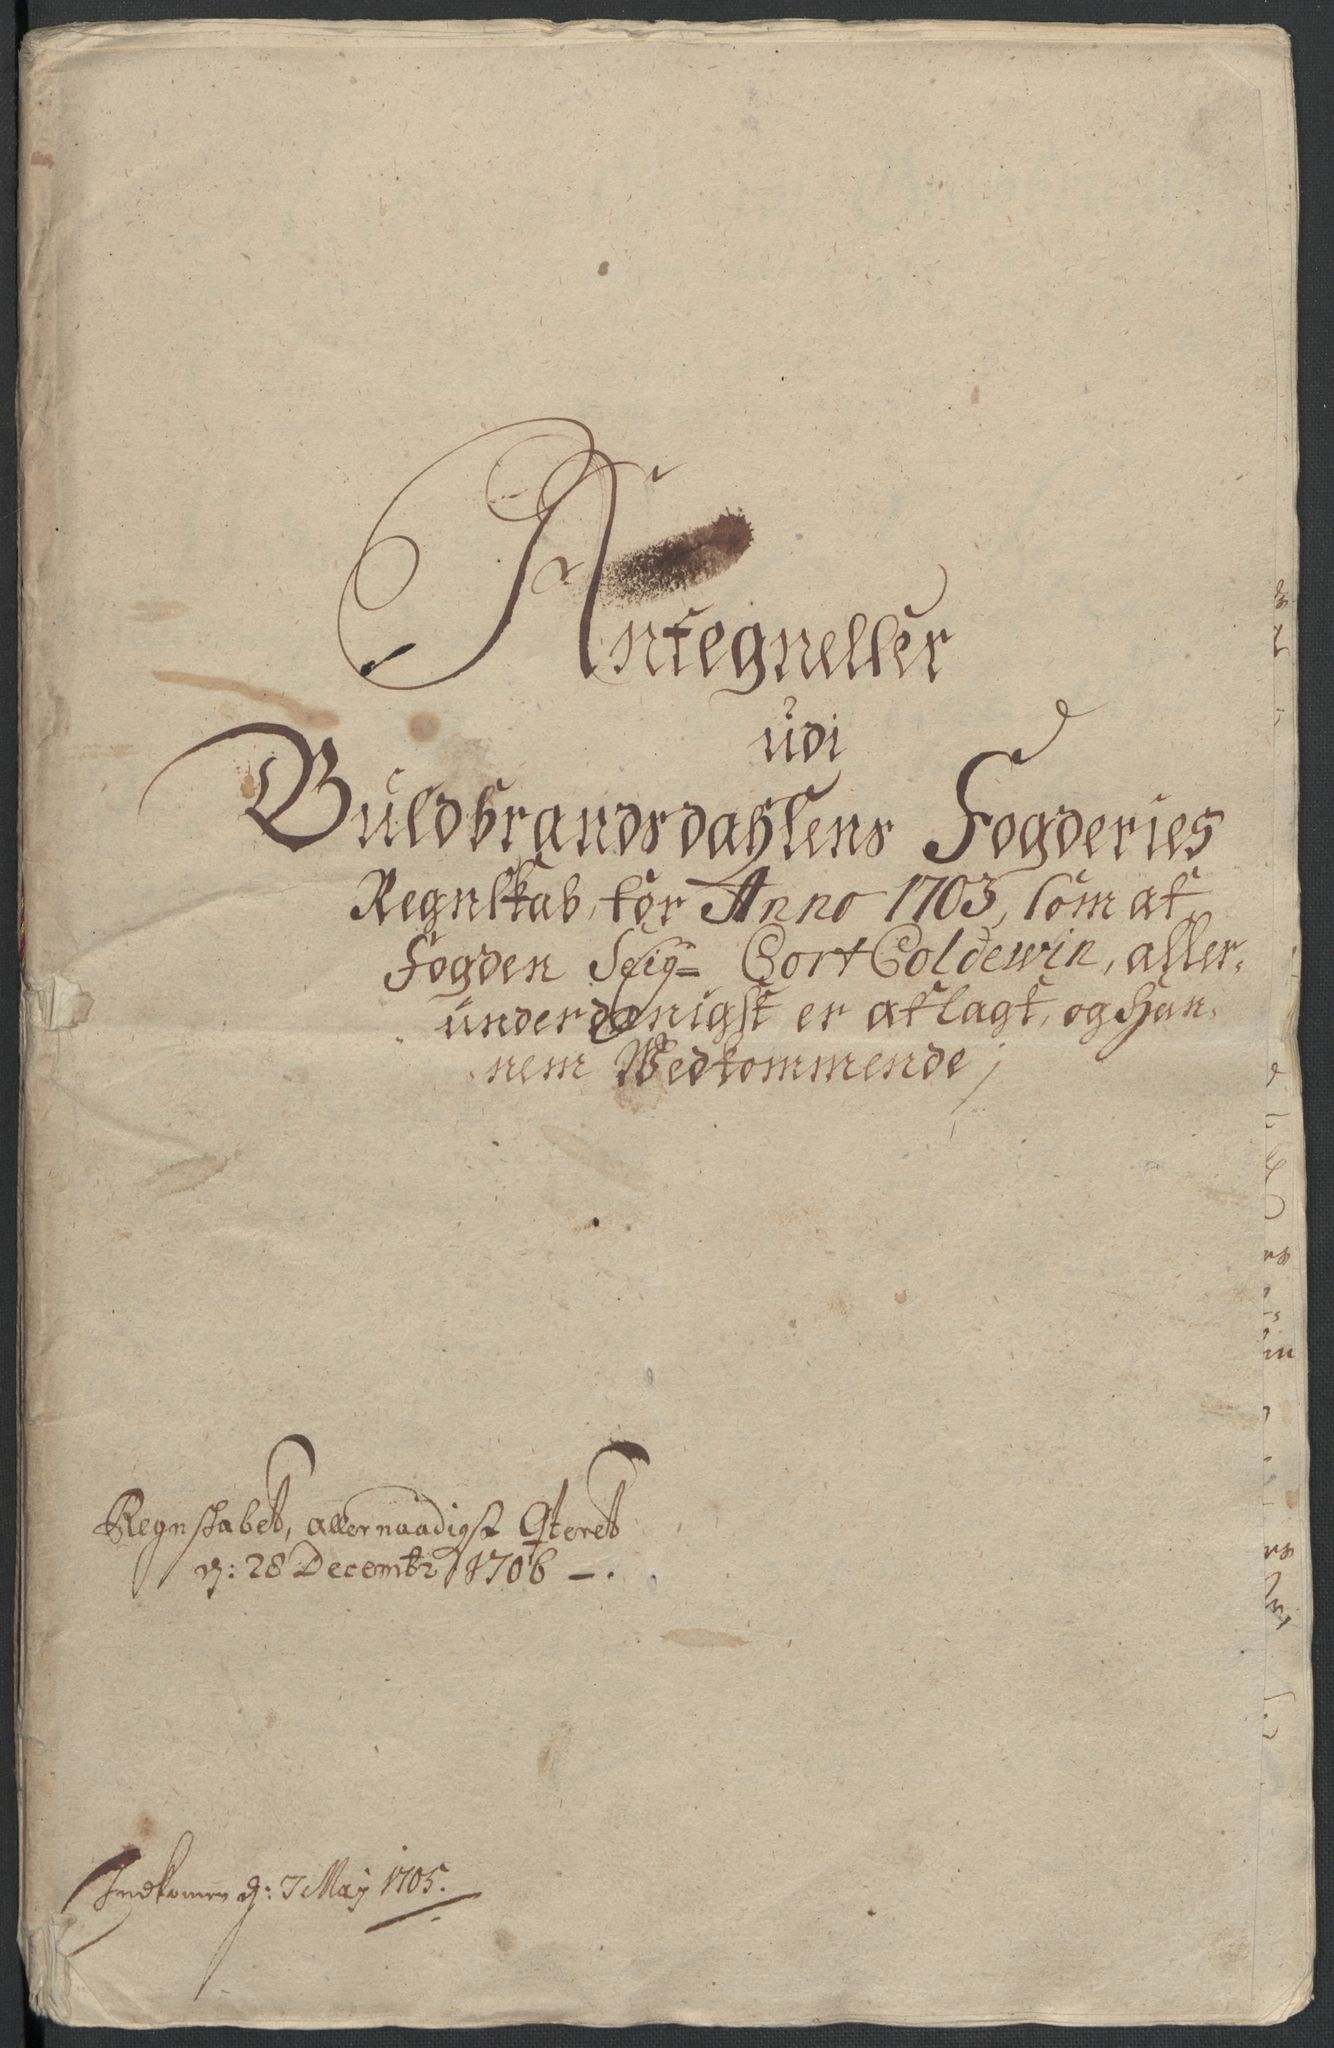 Antegnelser
udi
Guldbrandsdahlens Fogderies
Regnskab, for Anno 1703, som af
Fogden Seig= Cort Coldewin, aller,
underdanigst er aflagt, og Han,
nem Wedkommende;
Regnskabet, allernaadigst Qteret
d: 28 Decembr 1706 —.
Indkomen d: 7 Maij 1705.